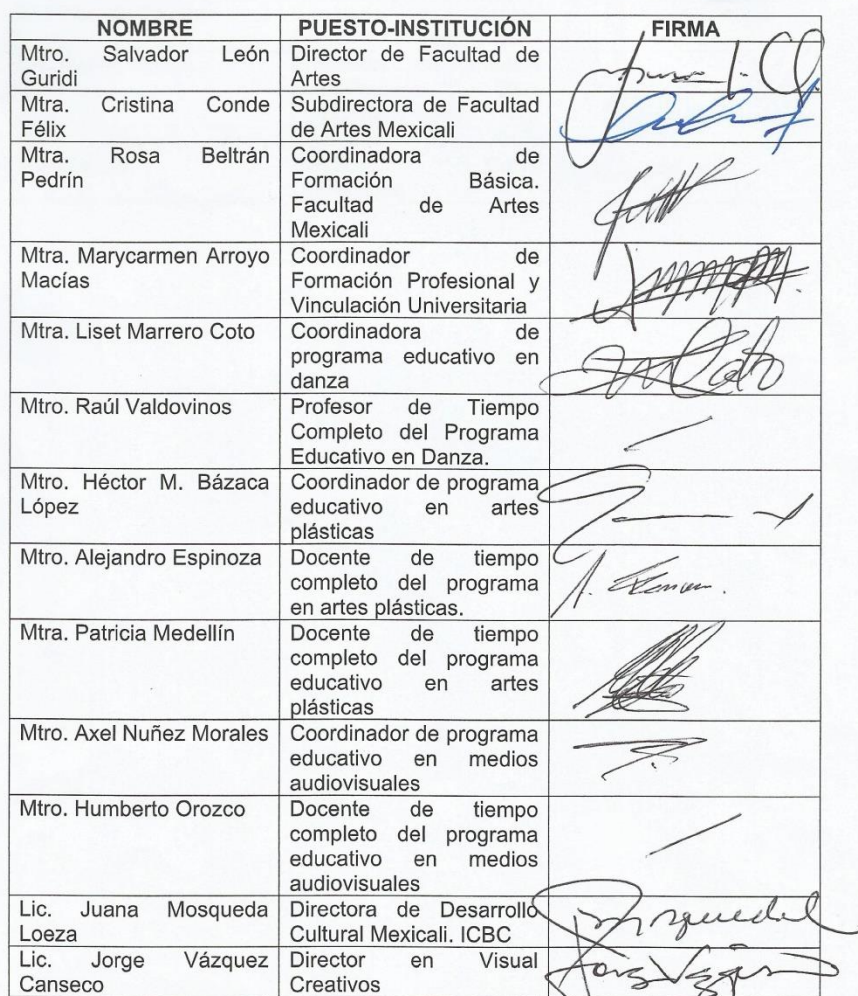 NOMBRE PUESTO-INSTITUCIÓN FIRMA
Mtro. Salvador León Director de Facultad de
Guridi Artes
Mtra. Cristina Conde Subdirectora de Facultad
Félix de Artes Mexicali
Mtra. Rosa Beltrán Coordinadora de
Pedrín Formación Básica.
Facultad de Artes
Mexicali
Mtra. Marycarmen Arroyo Coordinador de
Macías Formación Profesional y
Vinculación Universitaria
Mtra. Liset Marrero Coto Coordinadora de
programa educativo en
danza
Mtro. Raúl Valdovinos Profesor de Tiempo
Completo del Programa
Educativo en Danza.
Mtro. Héctor M. Bázaca Coordinador de programa
López educativo en artes
plásticas
Mtro. Alejandro Espinoza Docente de tiempo
completo del programa
en artes plásticas.
Mtra. Patricia Medellín Docente de tiempo
completo del programa
educativo en artes
plásticas
Mtro. Axel Nuñez Morales Coordinador de programa
educativo en medios
audiovisuales
Mtro. Humberto Orozco Docente de tiempo
completo del programa
educativo en medios
audiovisuales
Lic. Juana Mosqueda Directora de Desarrollo
Loeza Cultural Mexicali. ICBC
Lic. Jorge Vázquez Director en Visual
Canseco Creativos